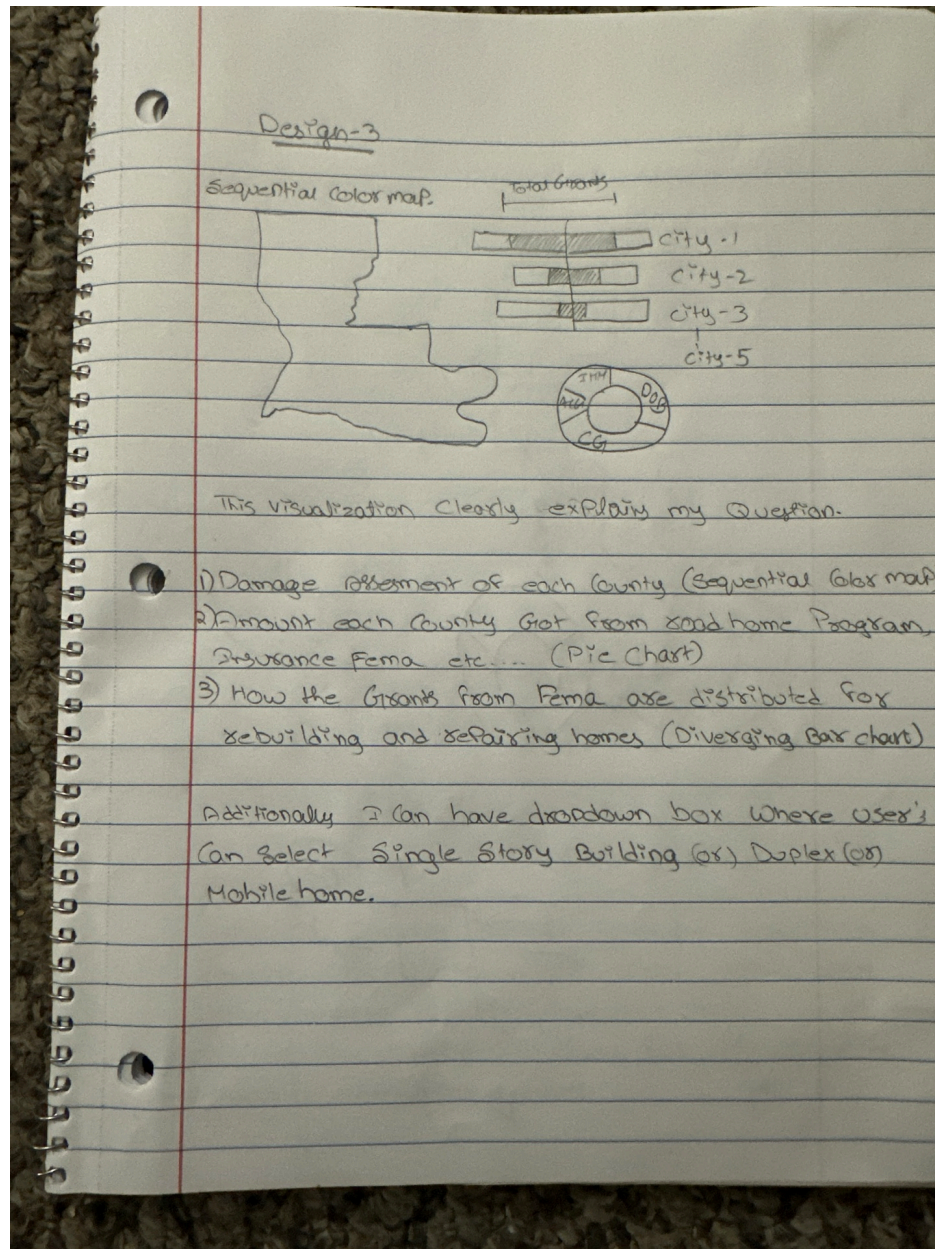 Design-3
Sequential Color map.
Total Grants
City-1
City-2
City-3
City-5
IHM
DOB
CG
This visualization Clearly explains my Question.
1) Damage Assesment of each County (Sequential Color map
2) Amount each County Got from road home Program,
Insurance Fema etc.... (Pie Chart)
3) How the Grants from Fema are distributed for
rebuilding and repairing homes (Diverging Bar chart)
Additionally I Can have dropdown box Where User's
Can Select Single Story Building (or) Duplex (or)
Mobile home.